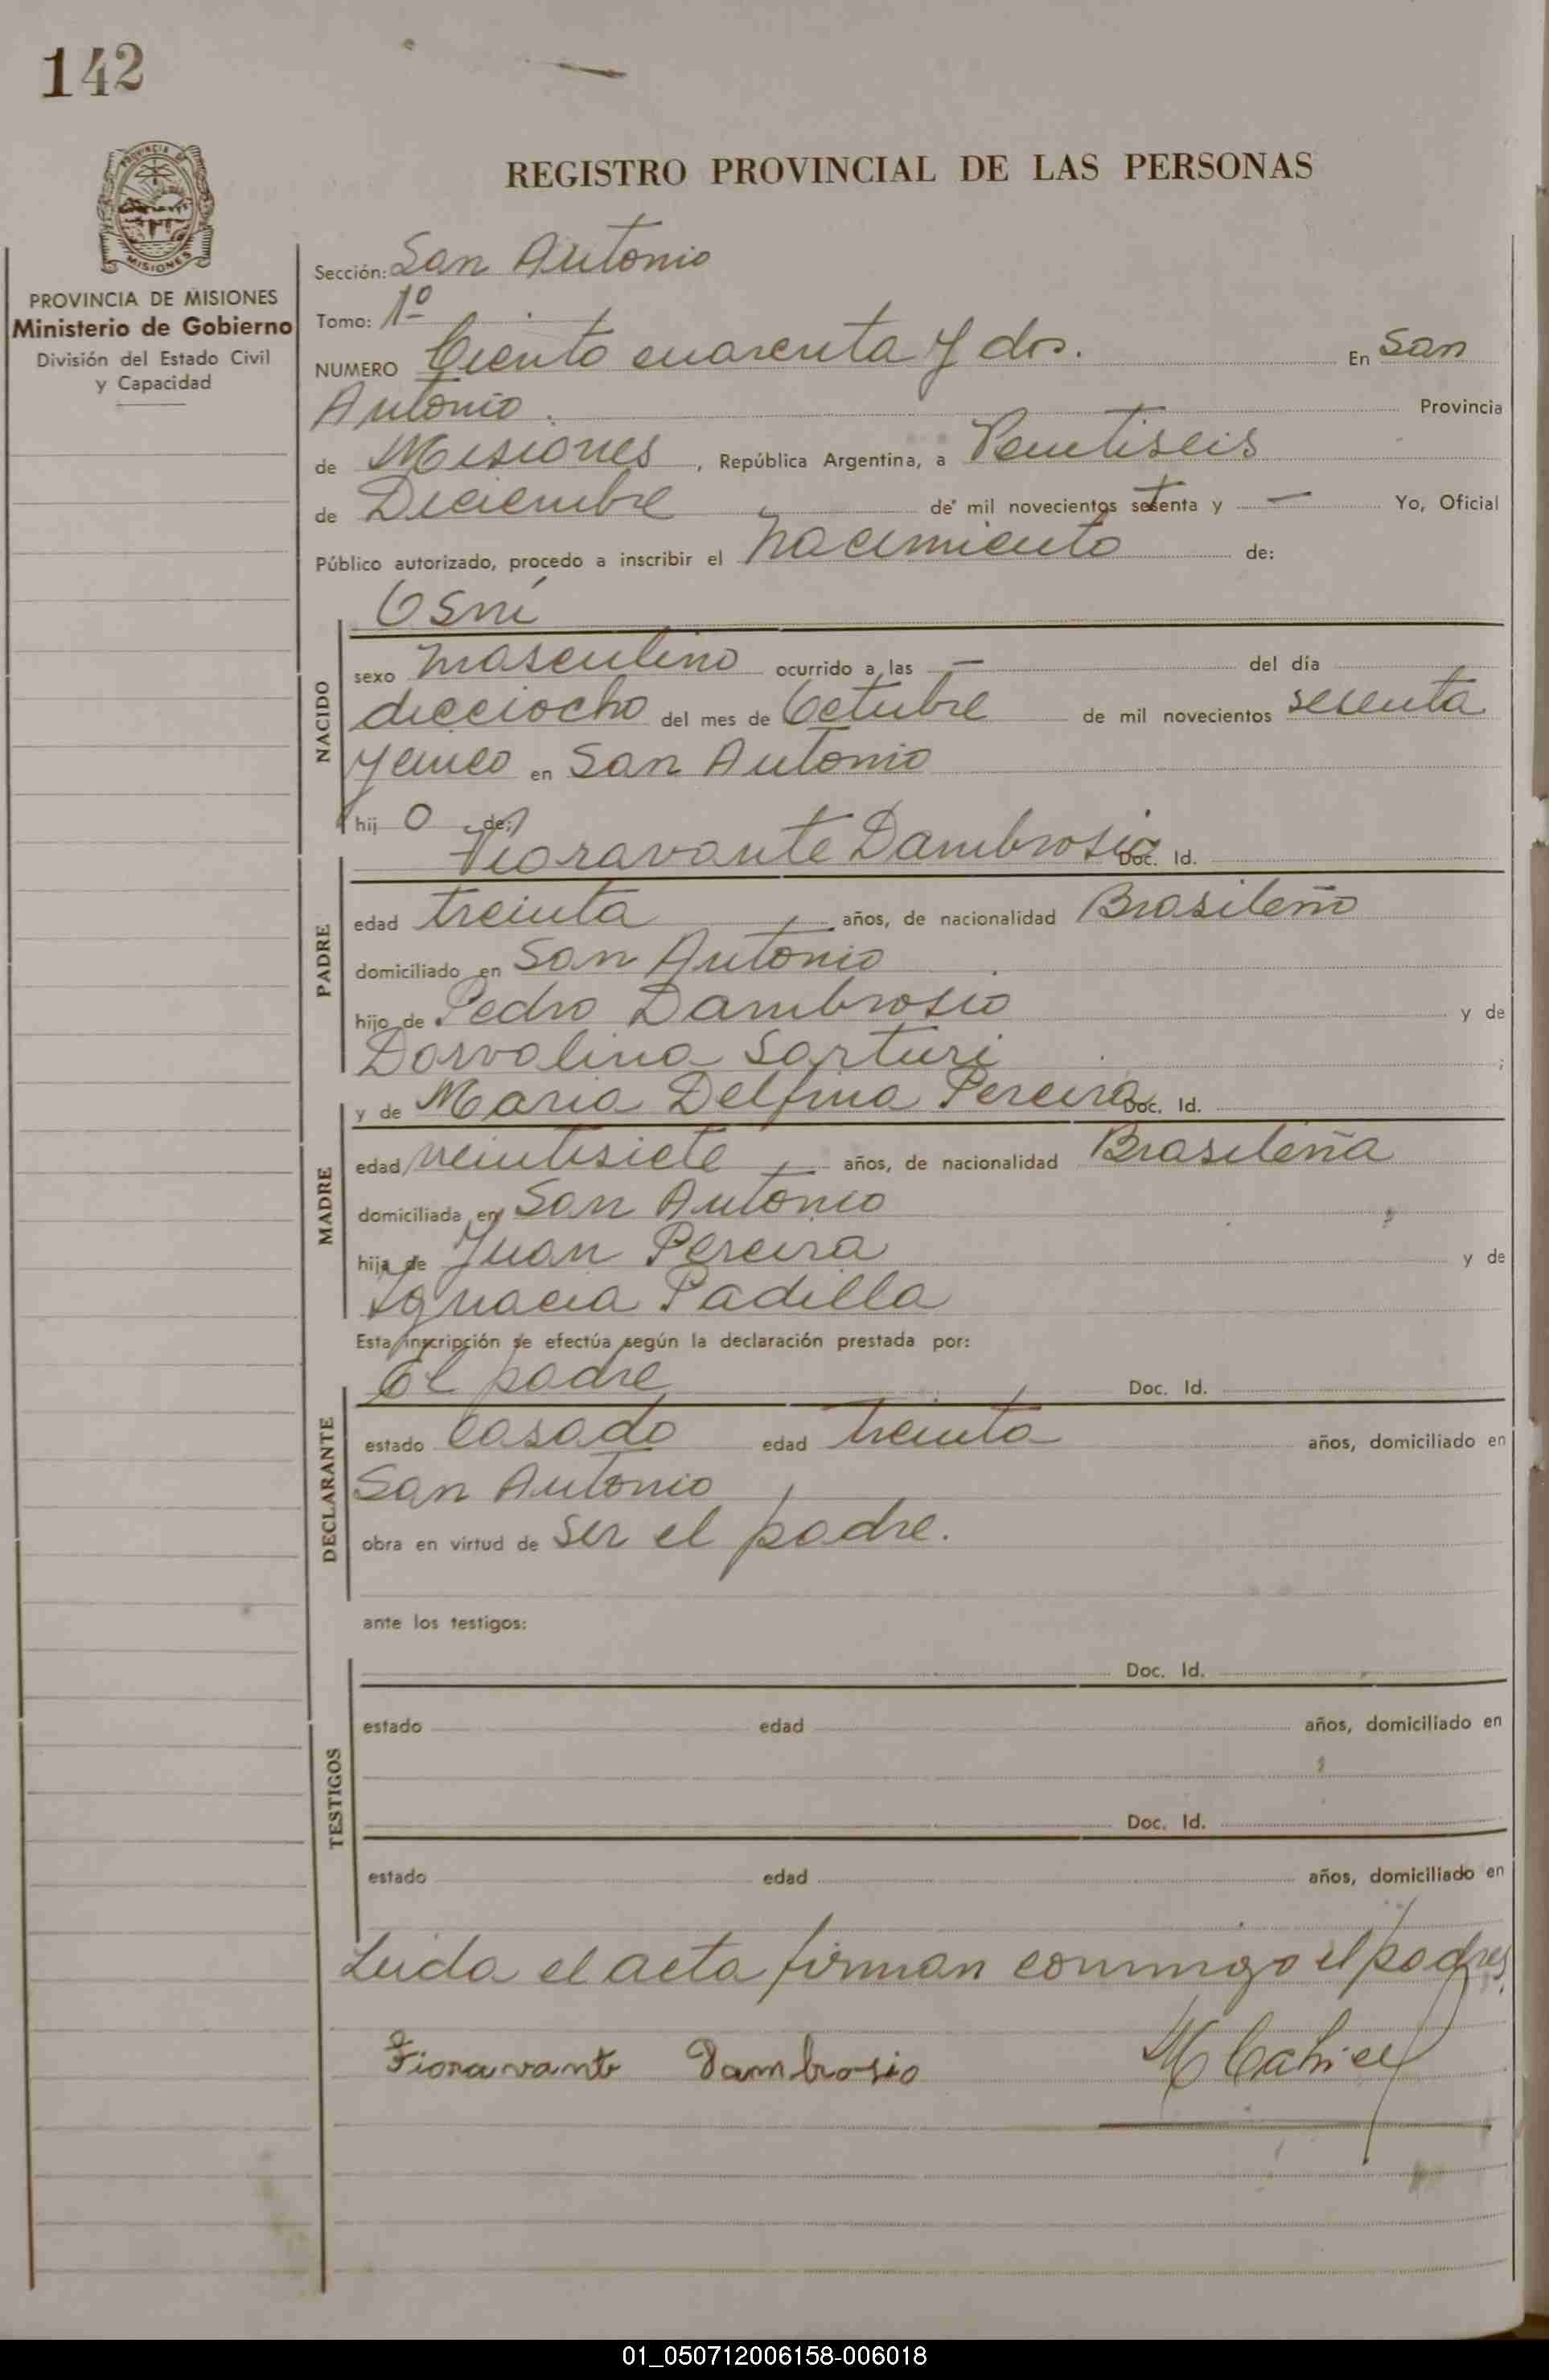 142
PROVINCIA DE MISIONES
MISIONES
PROVINCIA DE MISIONES
Ministerio de Gobierno
División del Estado Civil
y Capacidad
REGISTRO PROVINCIAL DE LAS PERSONAS
Sección: San Antonio
Tomo: 1º
NUMERO Ciento cuarenta y dos. En San
Antonio. Provincia
de Misiones, República Argentina, a Veintiseis
de Diciembre de mil novecientos setenta y — Yo, Oficial
Público autorizado, procedo a inscribir el Nacimiento de:
Osni
NACIDO
sexo masculino ocurrido a las — del día
dieciocho del mes de Octubre de mil novecientos sesenta
y cinco en San Antonio
hij o de:
Vioravante Dambrosio Doc. Id.
PADRE
edad treinta años, de nacionalidad Brasileño
domiciliado en San Antonio
hijo de Pedro Dambrosio y de
Dorvalina Sarturi ;
y de Maria Delfina Pereira Doc. Id.
MADRE
edad veintisiete años, de nacionalidad Brasileña
domiciliada en San Antonio
hija de Juan Pereira y de
Ignacia Padilla
Esta inscripción se efectúa según la declaración prestada por:
El padre Doc. Id.
DECLARANTE
estado casado edad treinta años, domiciliado en
San Antonio
obra en virtud de ser el padre.
ante los testigos:
Doc. Id.
TESTIGOS
estado edad años, domiciliado en
Doc. Id.
estado edad años, domiciliado en
Leida el acta firman conmigo el padres.
Fioravante Dambrosio
01_050712006158-006018